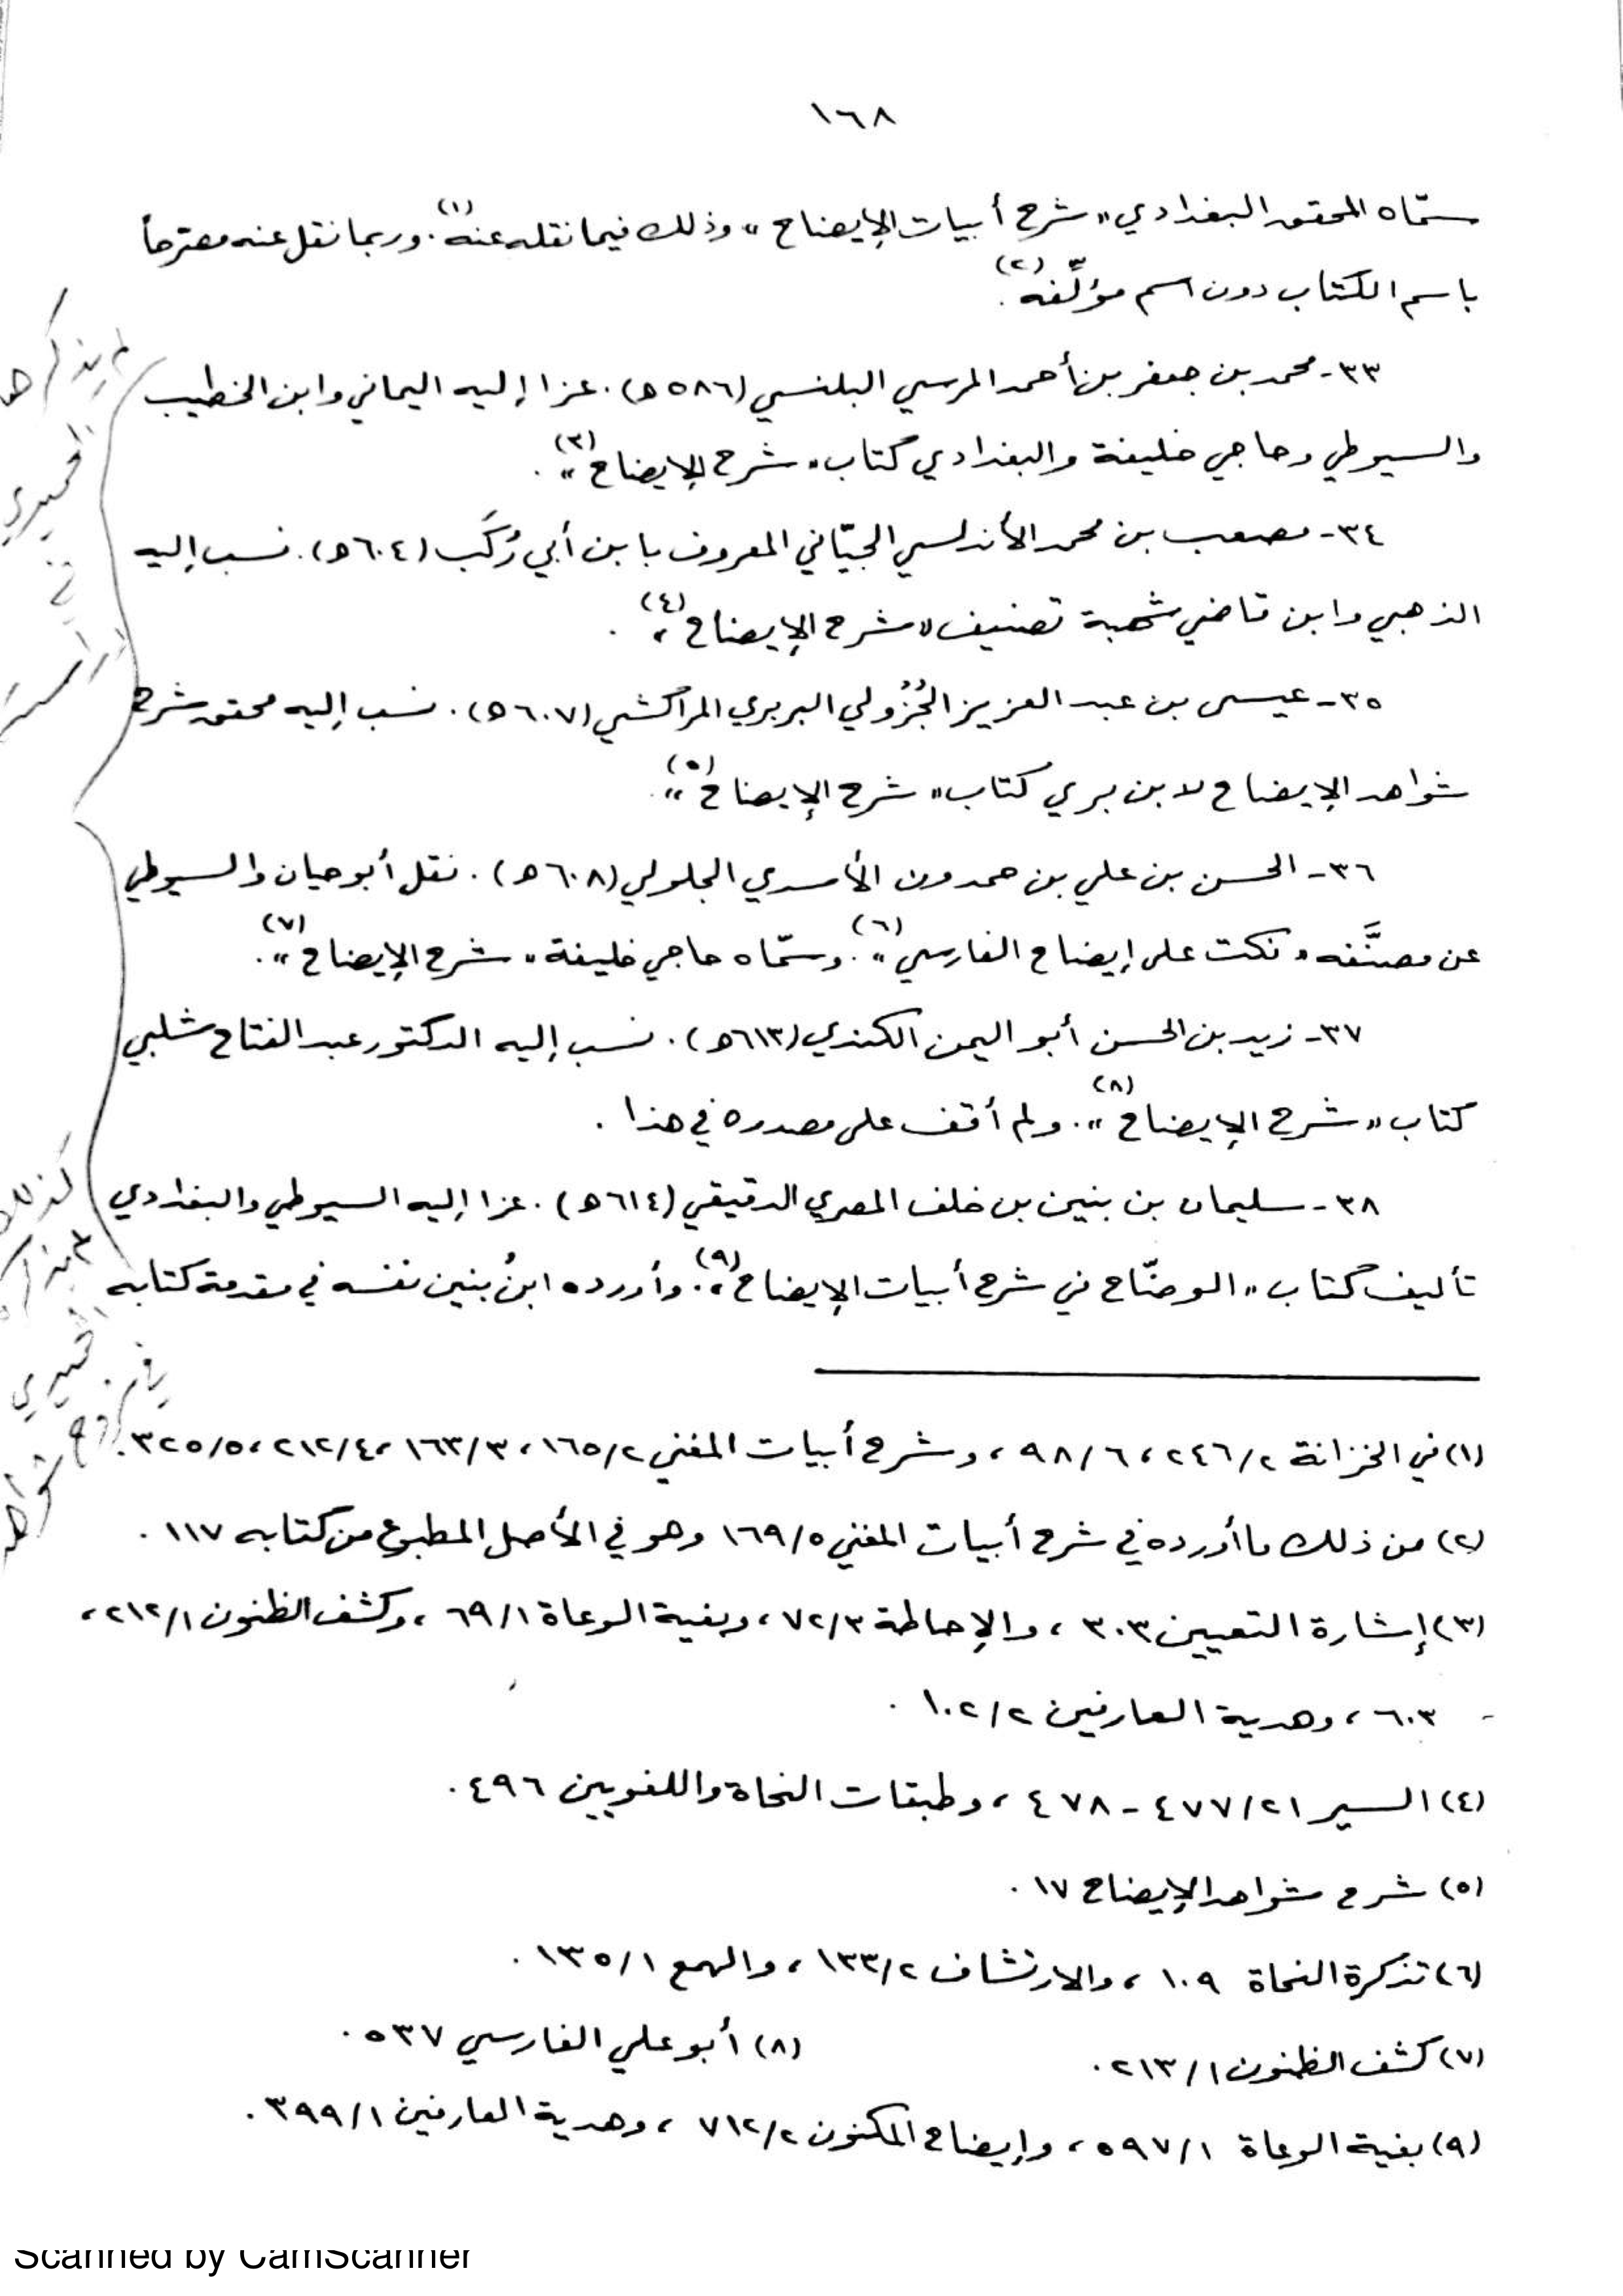 ١٦٨
سمّاه المحقق البغدادي «شرح أبيات الإيضاح» وذلك فيما نقله عنه(١). وربما نقل عنه مصرحاً
باسم الكتاب دون اسم مؤلِّفه(٢).
٣٣- محمد بن جعفر بن أحمد المرسي البلنسي (٥٨٦ه). عزا إليه اليماني وابن الخطيب
والسيوطي وحاجي خليفة والبغدادي كتاب «شرح الإيضاح(٣)».
٣٤- مصعب بن محمد الأندلسي الجيّاني المعروف بابن أبي رُكَب (٦٠٤ه). نسب إليه
الذهبي وابن قاضي شهبة تصنيف «شرح الإيضاح(٤)».
٣٥- عيسى بن عبد العزيز الجُزُولي البربري المراكشي (٦٠٧ه). نسب إليه محقق شرح
شواهد الإيضاح لابن بري كتاب «شرح الإيضاح(٥)».
٣٦- الحسن بن علي بن حمدون الأسدي الجلولي (٦٠٨ه). نقل أبو حيان والسيوطي
عن مصنَّفه «نكت على إيضاح الفارسي(٦)». وسمّاه حاجي خليفة «شرح الإيضاح(٧)».
٣٧- زيد بن الحسن أبو اليمن الكندي (٦١٣ه). نسب إليه الدكتور عبد الفتاح شلبي
كتاب «شرح الإيضاح(٨)». ولم أقف على مصدره في هذا.
٣٨- سليمان بن بنين بن خلف المصري الدقيقي (٦١٤ه). عزا إليه السيوطي والبغدادي
تأليف كتاب «الوضّاح في شرح أبيات الإيضاح(٩)». وأورده ابنُ بنين نفسه في مقدمة كتابه
(١) في الخزانة ٢/٢٤٦، ٦/٩٨، وشرح أبيات المغني ٢/١٦٥، ٣/١٦٣، ٤/٢١٢، ٥/٣٢٥.
(٢) من ذلك ما أورده في شرح أبيات المغني ٥/١٦٩ وهو في الأصل المطبوع من كتابه ١١٧.
(٣) إشارة التعيين ٣٠٣، والإحاطة ٣/٧٢، وبغية الوعاة ١/٦٩، وكشف الظنون ١/٢١٢،
٦٠٣، وهدية العارفين ٢/١٠٢.
(٤) السير ٢١/٤٧٧-٤٧٨، وطبقات النحاة واللغويين ٤٩٦.
(٥) شرح شواهد الإيضاح ١٧.
(٦) تذكرة النحاة ١٠٩، والارتشاف ٢/١٣٣، والهمع ١/١٣٥.
(٧) كشف الظنون ١/٢١٣. (٨) أبو علي الفارسي ٥٣٧.
(٩) بغية الوعاة ١/٥٩٧، وإيضاح المكنون ٢/٧١٢، وهدية العارفين ١/٣٩٩.
لم يذكر
الحميري
في
كذلك
لم يذكر
الحميري
Scanned by CamScanner